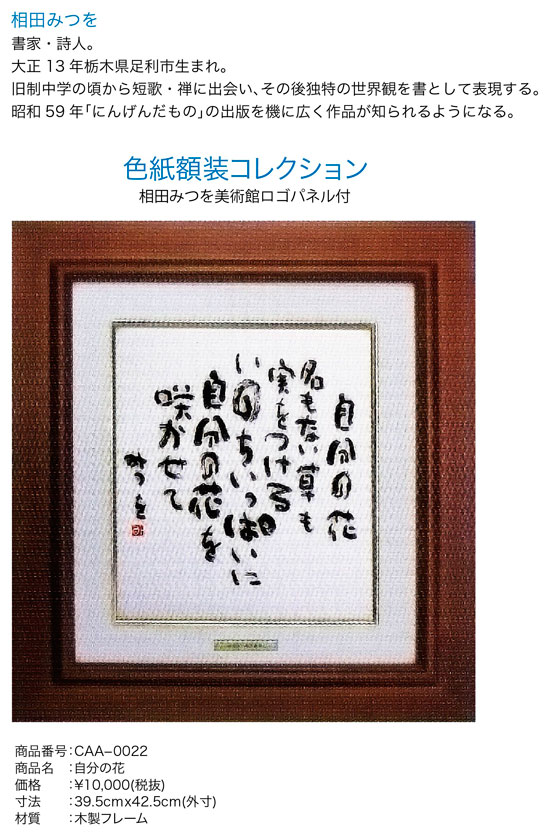 相田みつを
書家・詩人。
大正13年栃木県足利市生まれ。
旧制中学の頃から短歌・禅に出会い、その後独特の世界観を書として表現する。
昭和59年「にんげんだもの」の出版を機に広く作品が知られるようになる。
色紙額装コレクション
相田みつを美術館ロゴパネル付
自分の花
名もない草も
実をつける
いのちいっぱいに
自分の花を
咲かせて
みつを
商品番号：CAA−0022
商品名　：自分の花
価格　　：¥10,000(税抜)
寸法　　：39.5cmx42.5cm(外寸)
材質　　：木製フレーム